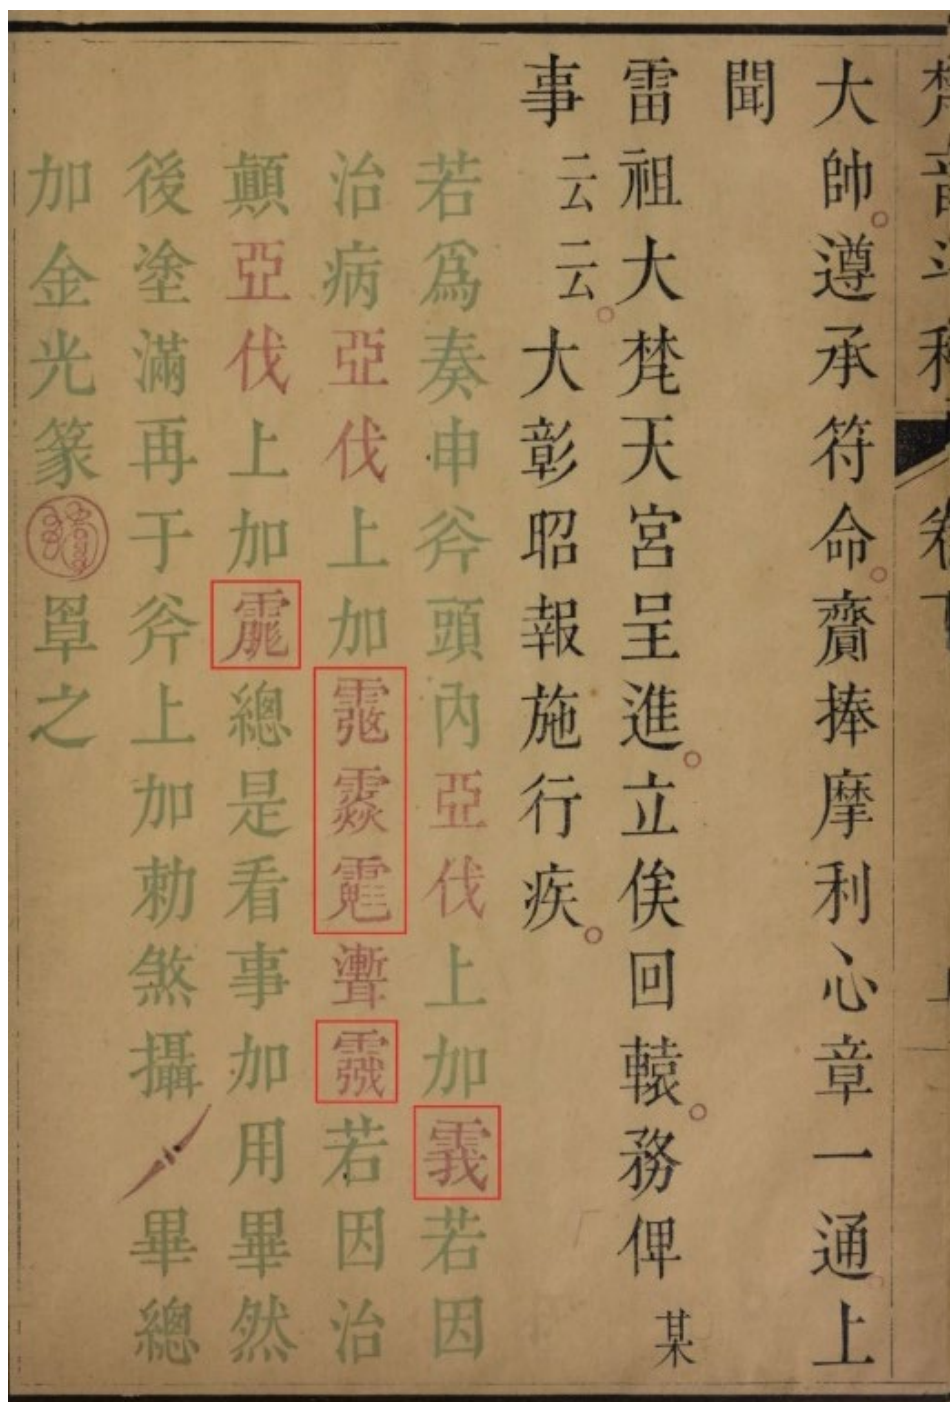 梵音斗科 卷下
大帥。遵承符命。齎捧摩利心章一通。上
聞
雷祖大梵天宮呈進。立俟回轅。務俾某
事云云。大彰昭報施行疾。
若爲奏申斧頭內亞伐上加若因
治病亞伐上加若因治
顛亞伐上加總是看事加用畢然
後塗滿再于斧上加勅煞攝畢總
加金光篆罩之